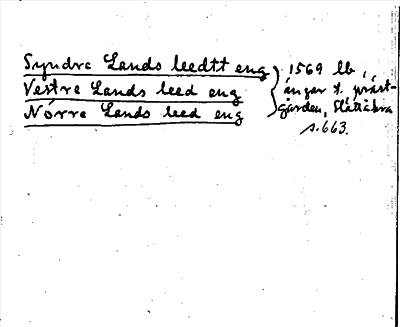 Syndre Lands leedtt eng } 1569 lb,
Vestre Lands leed eng } ängar t. präst-
Nörre Lands leed eng } gården, Slättåkra
s. 663.